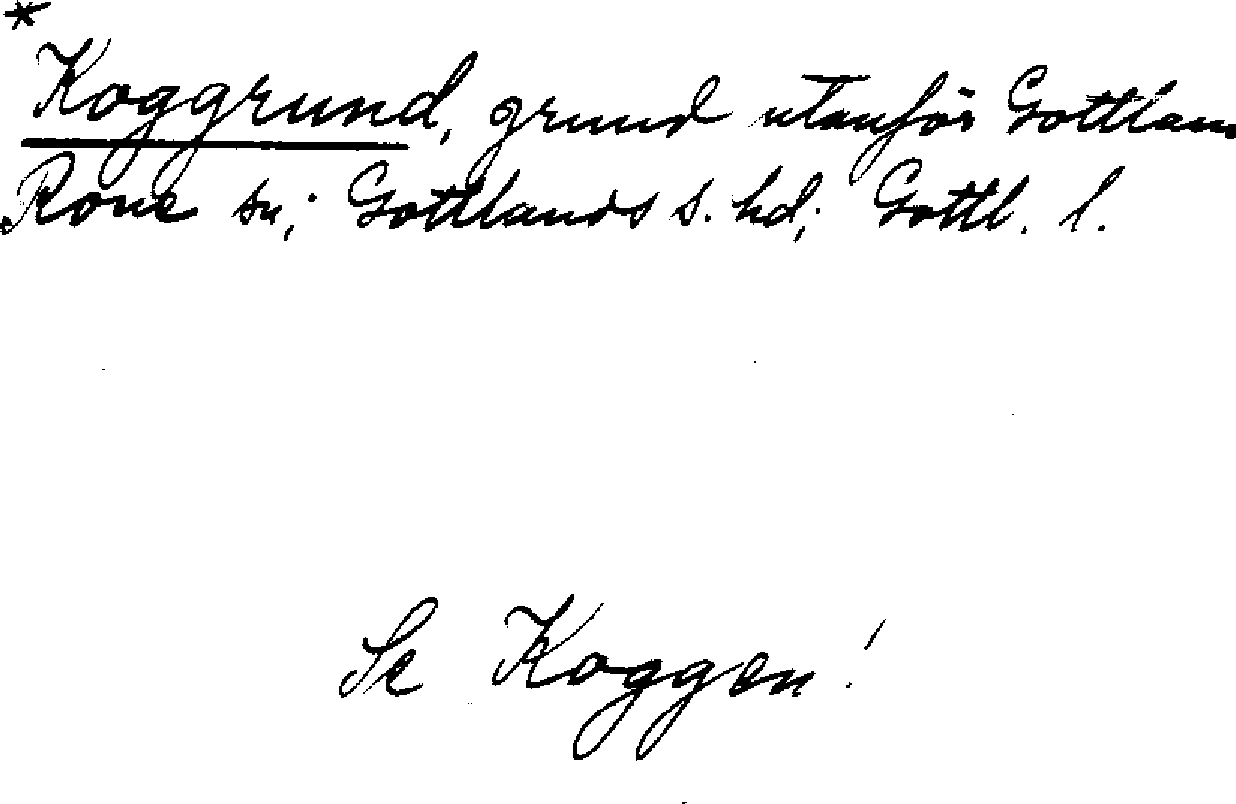 *
Koggrund, grund utanför Gottlan
Rone sn; Gottlands s. hd; Gottl. l.
Se Koggen!